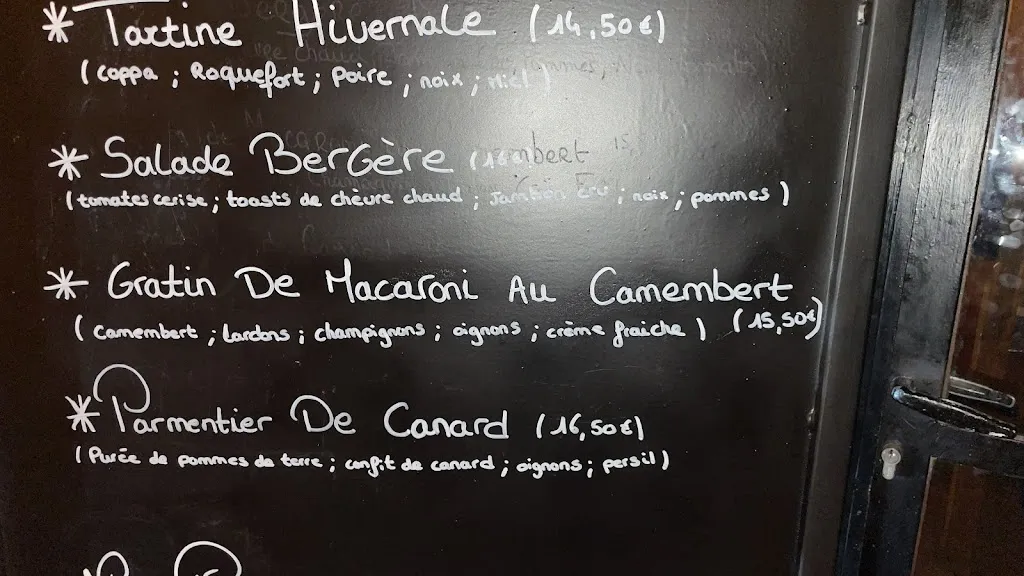 * Tartine Hivernale (14,50€)
(coppa ; Roquefort ; Poire ; noix ; Miel)
* Salade Bergère
(tomates cerise ; toasts de chèvre chaud ; Jambon ; noix ; pommes)
* Gratin De Macaroni Au Camembert
(camembert ; lardons ; champignons ; oignons ; crème fraiche) (15,50€)
* Parmentier De Canard (16,50€)
(Purée de pommes de terre ; confit de canard ; oignons ; persil)